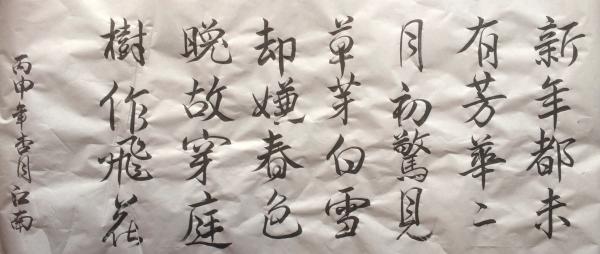 新年都未
有芳華二
月初驚見
草芽白雪
却嫌春色
晚故穿庭
樹作飛花
丙申年杏月江南